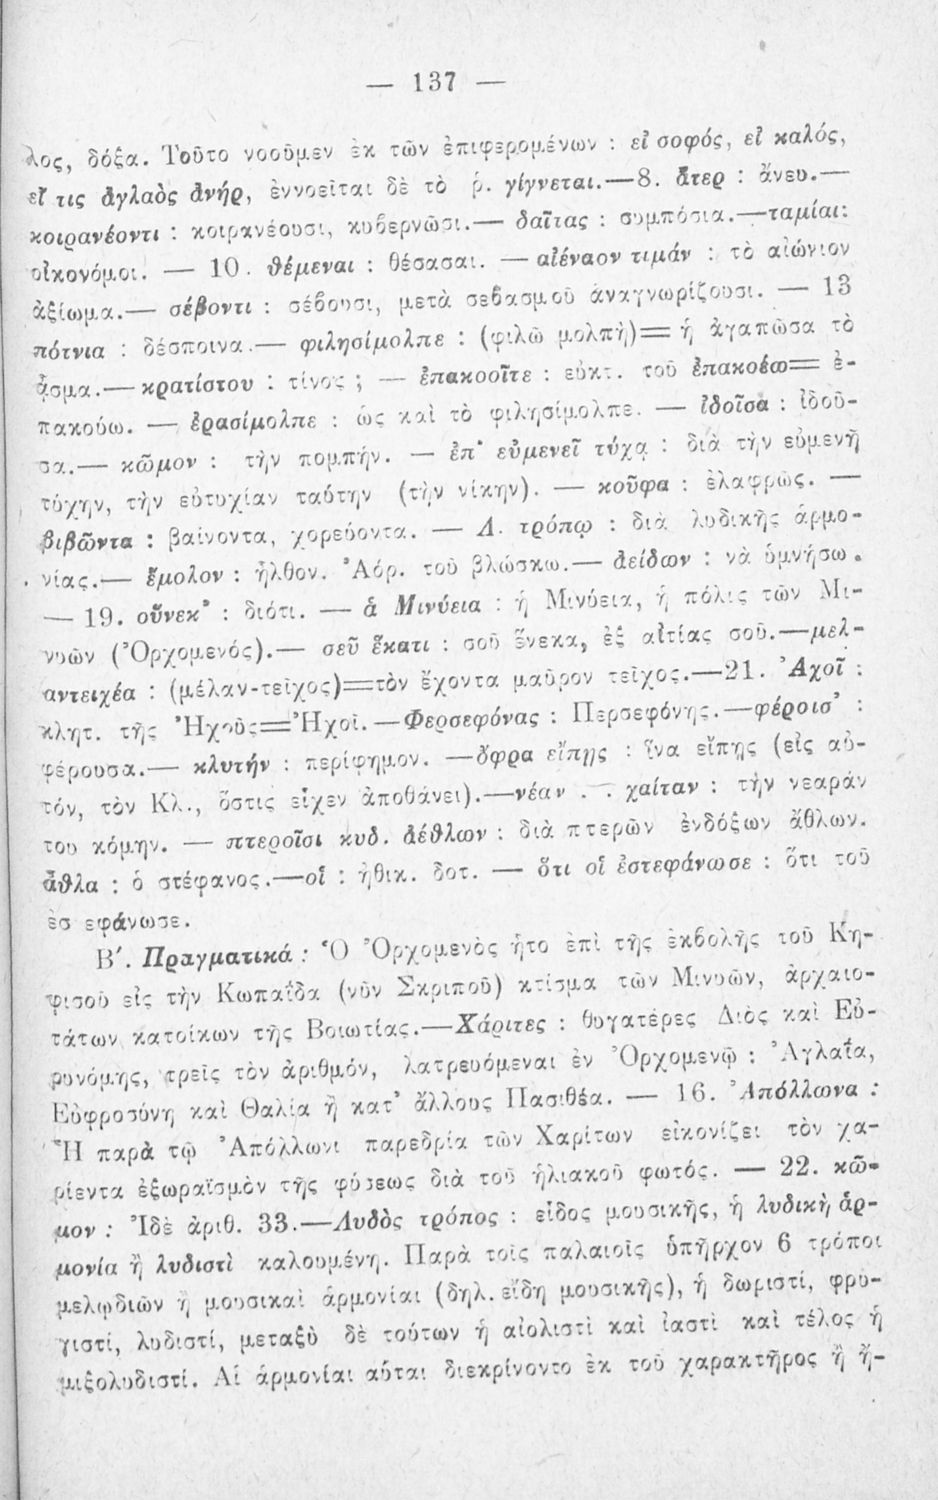 — 137 —
λος, δόξα. Τοῦτο νοοῦμεν ἐκ τῶν ἐπιφερομένων : εἰ σοφός, εἰ καλός,
εἴ τις ἀγλαὸς ἀνήρ, ἐννοεῖται δὲ τὸ ῥ. γίγνεται.—8. ἄτερ : ἄνευ.—
κοιρανέοντι : κοιρανέουσι, κυβερνῶσι.— δαῖτας : συμπόσια.—ταμίαι:
οἰκονόμοι. — 10. θέμεναι : θέσασαι. — αἰέναον τιμάν : τὸ αἰώνιον
ἀξίωμα.— σέβοντι : σέβουσι, μετὰ σεβασμοῦ ἀναγνωρίζουσι. — 13
πότνια : δέσποινα.— φιλησίμολπε : (φιλῶ μολπὴ)= ἡ ἀγαπῶσα τὸ
ᾆσμα.— κρατίστου : τίνος ; — ἐπακοοῖτε : εὐκτ. τοῦ ἐπακοέω= ἐ-
πακούω. — ἐρασίμολπε : ὡς καὶ τὸ φιλησίμολπε. — ἰδοῖσα : ἰδοῦ-
σα.— κῶμον : τὴν πομπήν. — ἐπ' εὐμενεῖ τύχᾳ : διὰ τὴν εὐμενῆ
τύχην, τὴν εὐτυχίαν ταύτην (τὴν νίκην). — κοῦφα : ἐλαφρῶς. —
βιβῶντα : βαίνοντα, χορεύοντα. — Λ. τρόπῳ : διὰ λυδικῆς ἁρμο-
νίας.— ἔμολον : ἦλθον. Ἀόρ. τοῦ βλώσκω.— ἀείδων : νὰ ὑμνήσω.
— 19. οὕνεκ' : διότι. — ἁ Μινύεια : ἡ Μινύεια, ἡ πόλις τῶν Μι-
νυῶν (Ὀρχομενός).— σεῦ ἕκατι : σοῦ ἕνεκα, ἐξ αἰτίας σοῦ.—μελ-
αντειχέα : (μέλαν-τεῖχος)=τὸν ἔχοντα μαῦρον τεῖχος.—21. Ἀχοῖ :
κλητ. τῆς Ἠχοῦς=Ἠχοῖ.—Φερσεφόνας : Περσεφόνης.—φέροισ' :
φέρουσα.— κλυτήν : περίφημον. —ὄφρα εἴπῃς : ἵνα εἴπῃς (εἰς αὐ-
τόν, τὸν Κλ., ὅστις εἶχεν ἀποθάνει).—νέαν . . χαίταν : τὴν νεαράν
του κόμην. — πτεροῖσι κυδ. ἀέθλων : διὰ πτερῶν ἐνδόξων ἄθλων.
ἆθλα : ὁ στέφανος.—οἱ : ἠθικ. δοτ. — ὅτι οἱ ἐστεφάνωσε : ὅτι τοῦ
ἐσ εφάνωσε.
Β΄. Πραγματικά : Ὁ Ὀρχομενὸς ἦτο ἐπὶ τῆς ἐκβολῆς τοῦ Κη-
φισοῦ εἰς τὴν Κωπαΐδα (νῦν Σκριποῦ) κτίσμα τῶν Μινυῶν, ἀρχαιο-
τάτων κατοίκων τῆς Βοιωτίας.—Χάριτες : θυγατέρες Διὸς καὶ Εὐ-
ρυνόμης, τρεῖς τὸν ἀριθμόν, λατρευόμεναι ἐν Ὀρχομενῷ : Ἀγλαΐα,
Εὐφροσύνη καὶ Θαλία ἢ κατ' ἄλλους Πασιθέα. — 16. Ἀπόλλωνα :
Ἡ παρὰ τῷ Ἀπόλλωνι παρεδρία τῶν Χαρίτων εἰκονίζει τὸν χα-
ρίεντα ἐξωραϊσμὸν τῆς φύσεως διὰ τοῦ ἡλιακοῦ φωτός. — 22. κῶ-
μον : Ἰδὲ ἀριθ. 33.—Λυδὸς τρόπος : εἶδος μουσικῆς, ἡ λυδικὴ ἁρ-
μονία ἢ λυδιστὶ καλουμένη. Παρὰ τοῖς παλαιοῖς ὑπῆρχον 6 τρόποι
μελῳδιῶν ἢ μουσικαὶ ἁρμονίαι (δηλ. εἴδη μουσικῆς), ἡ δωριστί, φρυ-
γιστί, λυδιστί, μεταξὺ δὲ τούτων ἡ αἰολιστὶ καὶ ἰαστὶ καὶ τέλος ἡ
μιξολυδιστί. Αἱ ἁρμονίαι αὗται διεκρίνοντο ἐκ τοῦ χαρακτῆρος ἢ ἤ-